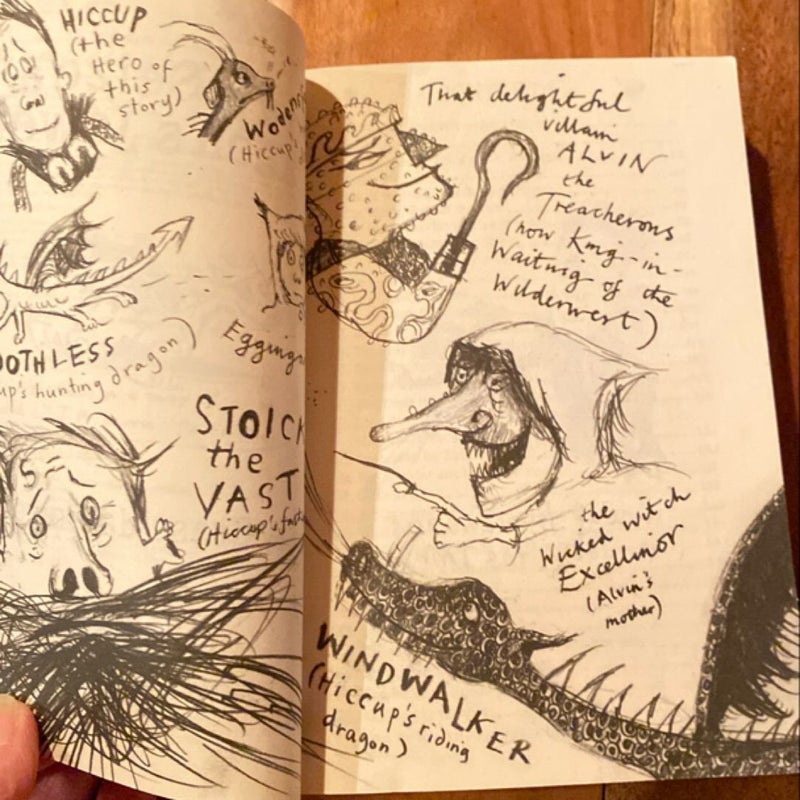 HICCUP
(the
Hero of
this
story)
(Hiccup's
OOTHLESS
up's hunting dragon)
STOICK
the
VAST
(Hiccup's
That delightful
villain
ALVIN
the
Treacherous
(now King-in-
Waiting of the
Wilderwest)
the
Wicked witch
Excellinor
(Alvin's
mother)
WINDWALKER
(Hiccup's riding
dragon)